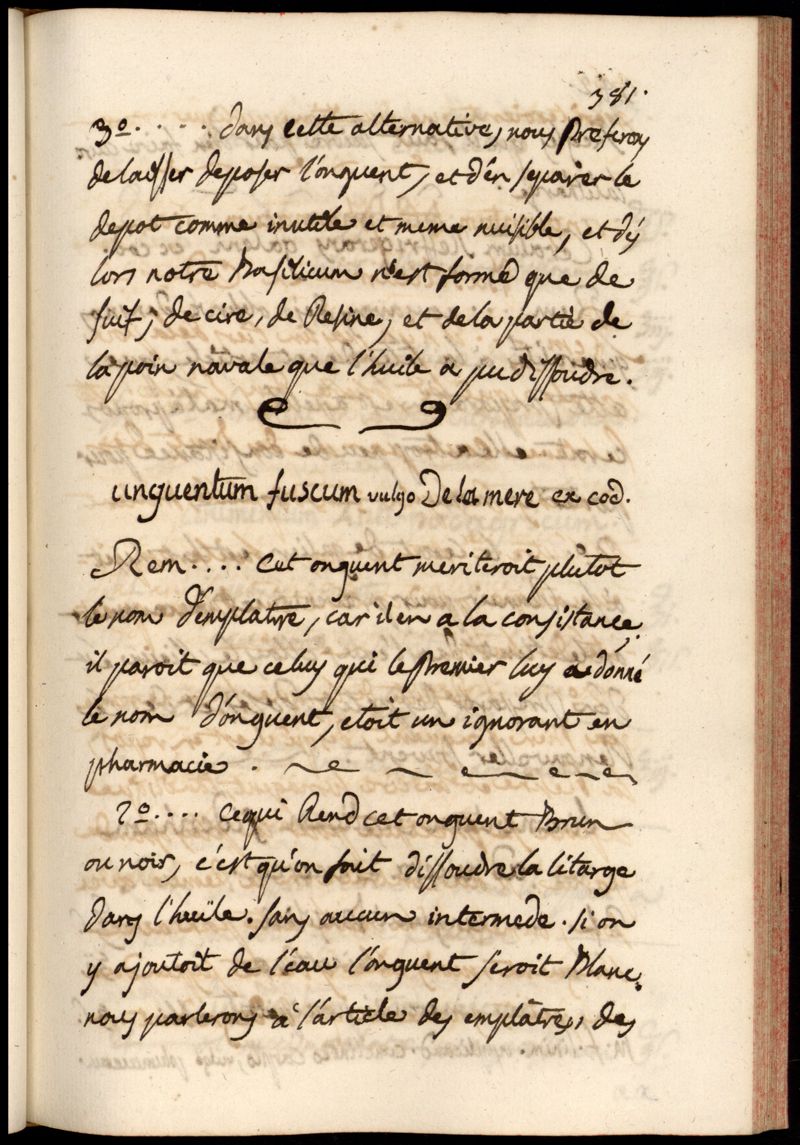 381.
3º. . . . . dans cette alternative, nous Preferons
de laisser deposer l'onguent, et d'en separer le
depot comme inutile et meme nuisible, et dés
lors notre Basilicum n'est formé que de
suif, de cire, de Resine, et de la partie de
la poix navale que l'huile a pu dissoudre.
unguentum fuscum vulgo De la mere ex cod.
Rem. . . . Cet onguent meriteroit plutot
le nom d'emplatre, car il en a la consistance,
il paroit que celuy qui le Premier luy a donné
le nom d'onguent, etoit un ignorant en
pharmacie.
2º. . . . Ce qui Rend cet onguent Brun
ou noir, c'est qu'on fait dissoudre la litarge
dans l'huile. sans aucun intermede. si on
y ajoutoit de l'eau l'onguent seroit Blanc.
nous parlerons à l'article des emplâtres, des